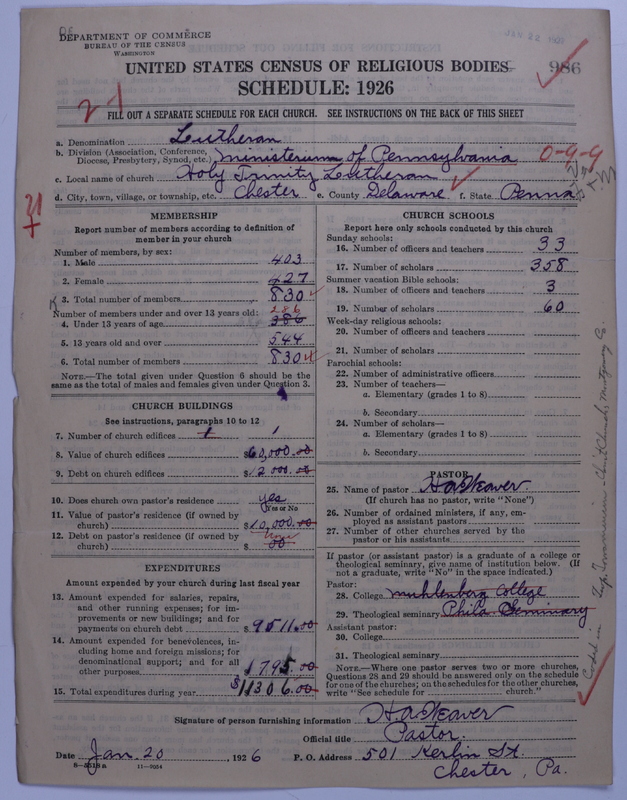 DEPARTMENT OF COMMERCE
BUREAU OF THE CENSUS
WASHINGTON
UNITED STATES CENSUS OF RELIGIOUS BODIES
986
SCHEDULE: 1926
2-1
FILL OUT A SEPARATE SCHEDULE FOR EACH CHURCH. SEE INSTRUCTIONS ON THE BACK OF THIS SHEET
a. Denomination Lutheran
b. Division (Association, Conference, Diocese, Presbytery, Synod, etc.) Ministerium of Pennsylvania 0-9-9
c. Local name of church Holy Trinity Lutheran
d. City, town, village, or township, etc. Chester e. County Delaware f. State Penna
MEMBERSHIP
Report number of members according to definition of
member in your church
Number of members, by sex:
1. Male 403
2. Female 427
3. Total number of members 830
Number of members under and over 13 years old: 286
4. Under 13 years of age 386
5. 13 years old and over 544
6. Total number of members 830
NOTE.—The total given under Question 6 should be
same as the total of males and females given under Question 3.
CHURCH BUILDINGS
See instructions, paragraphs 10 to 12
7. Number of church edifices 1 1
8. Value of church edifices $60,000.00
9. Debt on church edifices $12000.00
10. Does church own pastor's residence yes
Yes or No
11. Value of pastor's residence (if owned by
church) $10,000.00
12. Debt on pastor's residence (if owned by
church) $ 00
EXPENDITURES
Amount expended by your church during last fiscal year
13. Amount expended for salaries, repairs,
and other running expenses; for im-
provements or new buildings; and for
payments on church debt $9511.00
14. Amount expended for benevolences, in-
cluding home and foreign missions; for
denominational support; and for all
other purposes 1795.00
15. Total expenditures during year $11306.00
CHURCH SCHOOLS
Report here only schools conducted by this church
Sunday schools:
16. Number of officers and teachers 33
17. Number of scholars 358
Summer vacation Bible schools:
18. Number of officers and teachers 3
19. Number of scholars 60
Week-day religious schools:
20. Number of officers and teachers
21. Number of scholars
Parochial schools:
22. Number of administrative officers
23. Number of teachers—
a. Elementary (grades 1 to 8)
b. Secondary
24. Number of scholars—
a. Elementary (grades 1 to 8)
b. Secondary
PASTOR
25. Name of pastor H A Weaver
(If church has no pastor, write "None")
26. Number of ordained ministers, if any, em-
ployed as assistant pastors
27. Number of other churches served by the
pastor or his assistants
If pastor (or assistant pastor) is a graduate of a college or
theological seminary, give name of institution below. (If
not a graduate, write "No" in the space indicated.)
Pastor:
28. College Muhlenberg College
29. Theological seminary Phila Seminary
Assistant pastor:
30. College
31. Theological seminary
NOTE.—Where one pastor serves two or more churches,
Questions 28 and 29 should be answered only on the schedule
for one of the churches; on the schedules for the other churches,
write "See schedule for church."
Signature of person furnishing information H A Weaver
Official title Pastor.
Date Jan. 20, 1926 P. O. Address 501 Kerlin St.
Chester, Pa.
8—5518a 11—9054